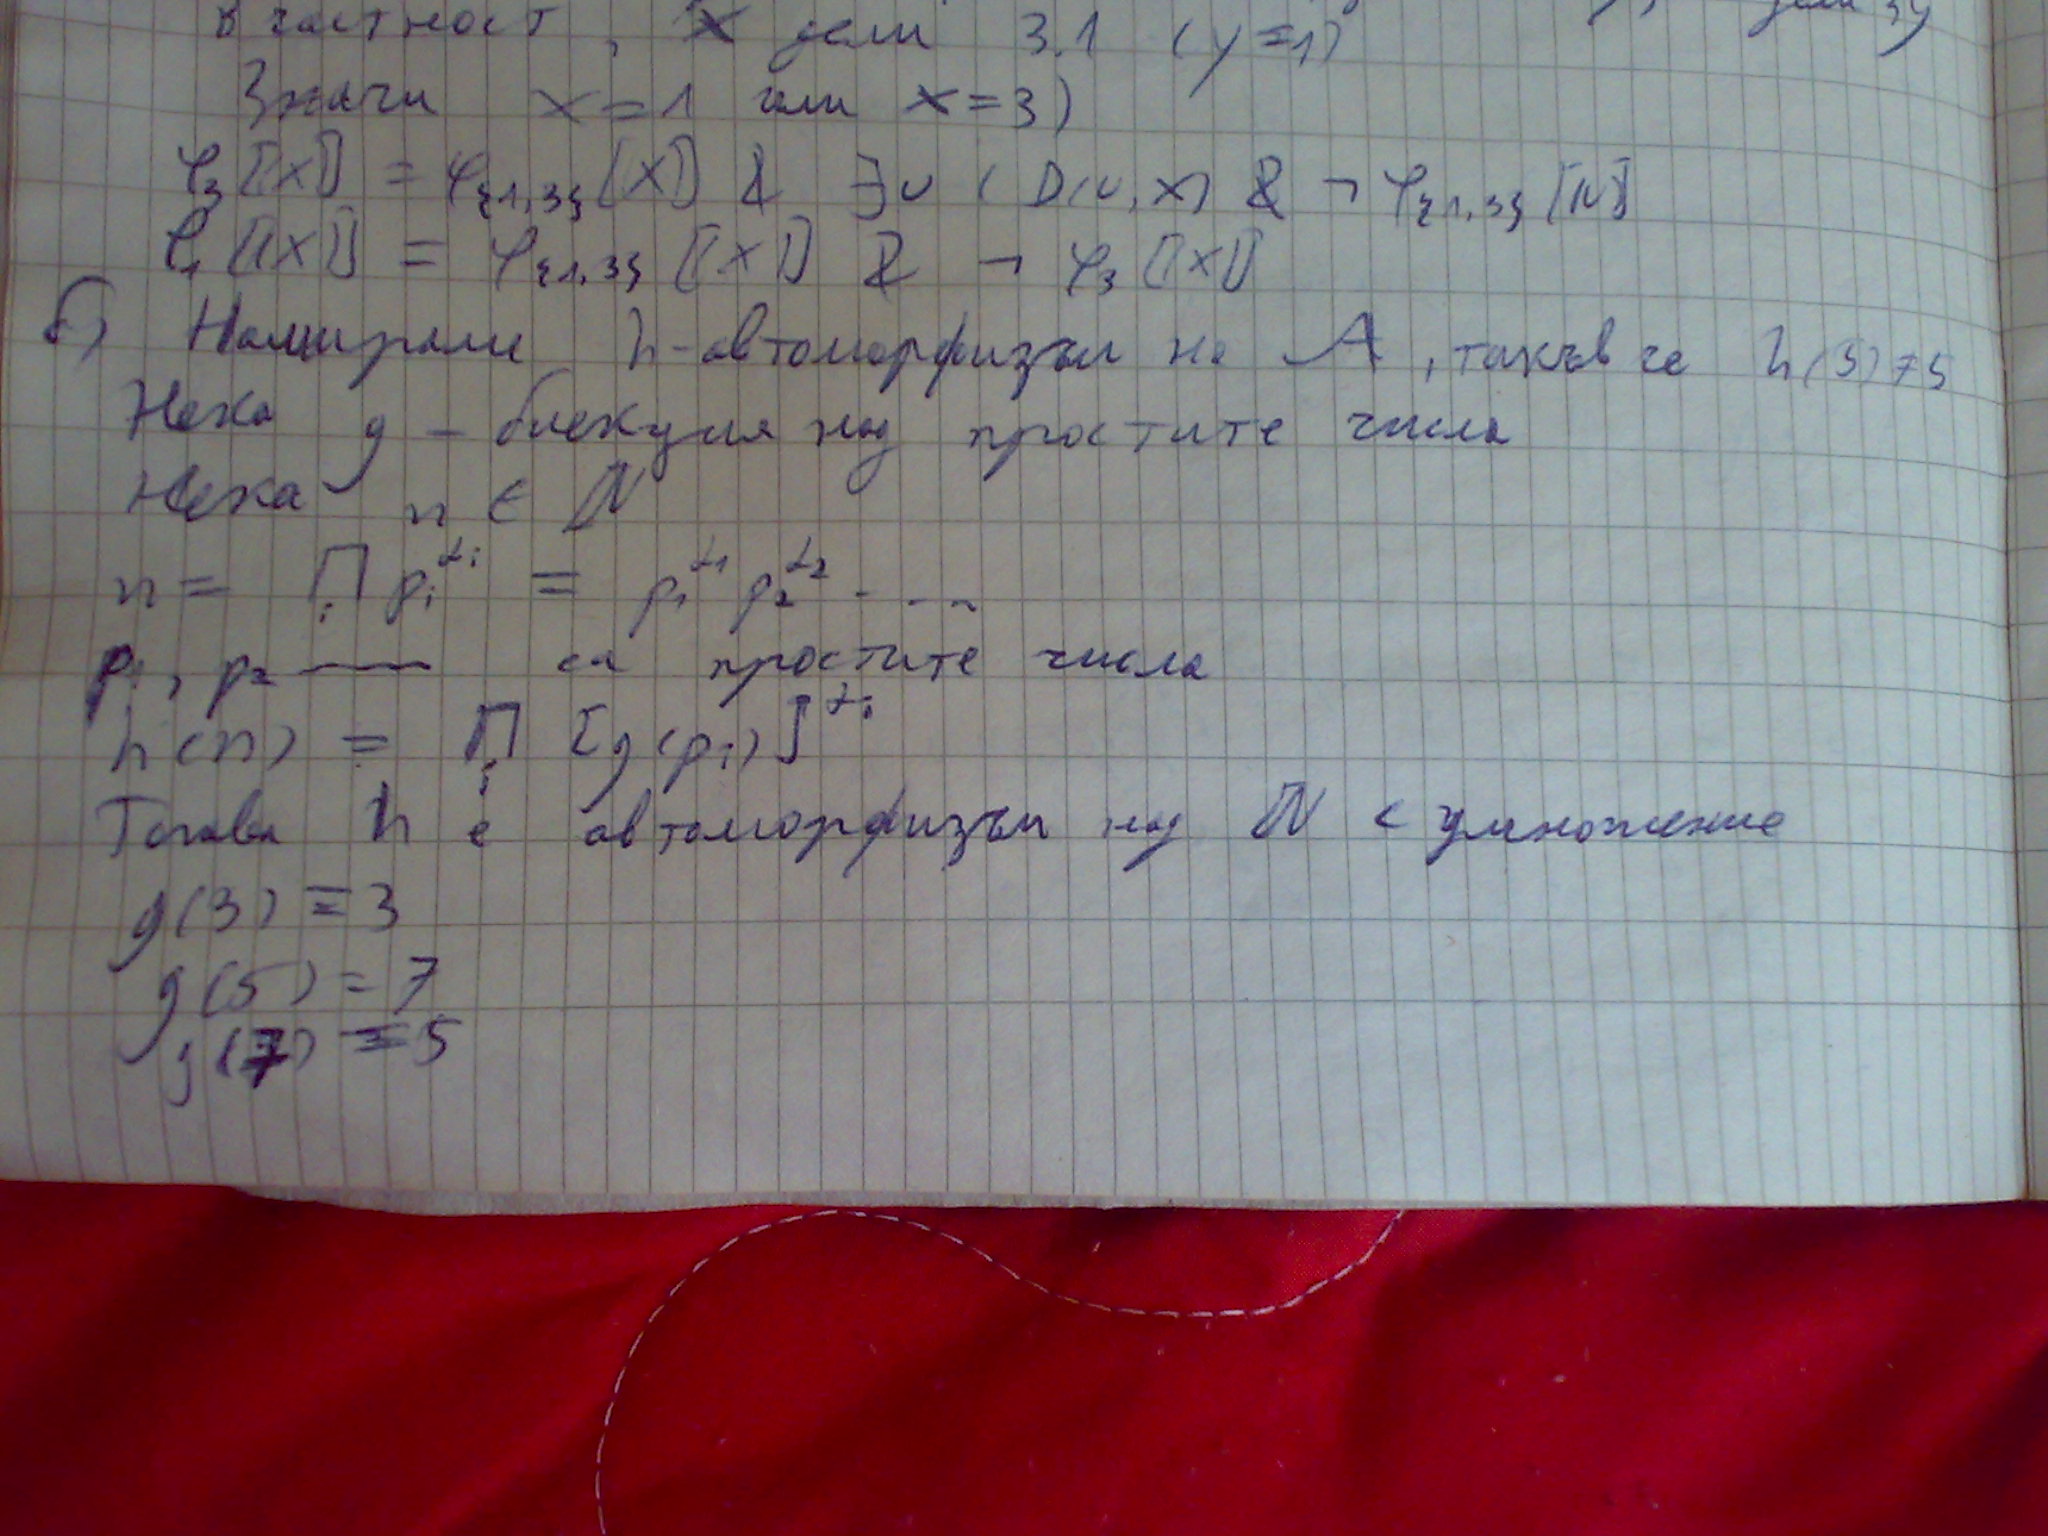 В частност, x дели 3.1 (y=1) дели 3y
Значи x=1 или x=3)
φ₃[[x]] = φ{1,3}[[x]] & ∃u (D(u,x) & ¬φ{1,3}[[u]]
φ₁[[x]] = φ{1,3}[[x]] & ¬φ₃[[x]]
б) Намирам h-автоморфизъм на A, такъв че h(5)≠5
Нека g – биекция над простите числа
Нека n ∈ ℕ
n = ∏ᵢ pᵢ^αᵢ = p₁^α₁ p₂^α₂ ...
p₁, p₂ — са простите числа
h(n) = ∏ᵢ [g(pᵢ)]^αᵢ
Тогава h е автоморфизъм над ℕ с умножение
g(3) = 3
g(5) = 7
g(7) = 5